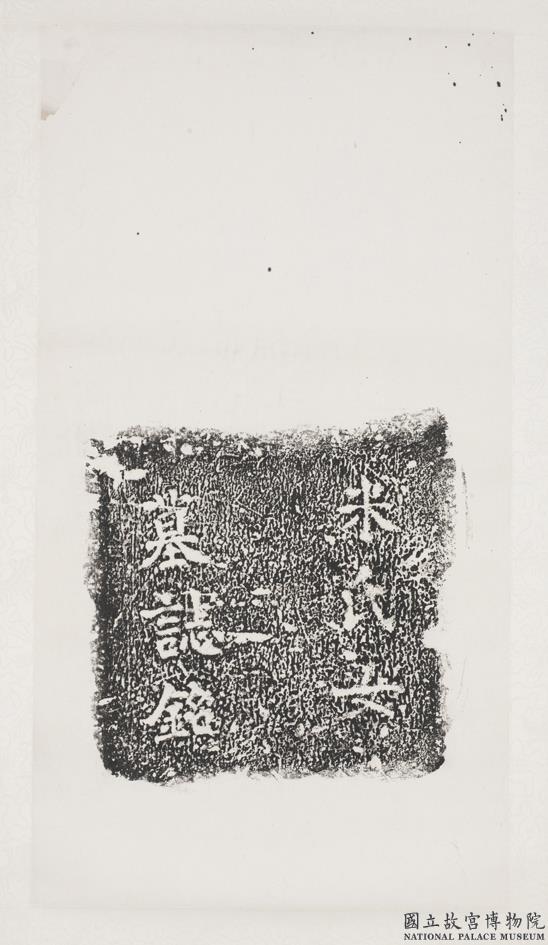 米氏女
墓誌銘
國立故宮博物院
NATIONAL PALACE MUSEUM